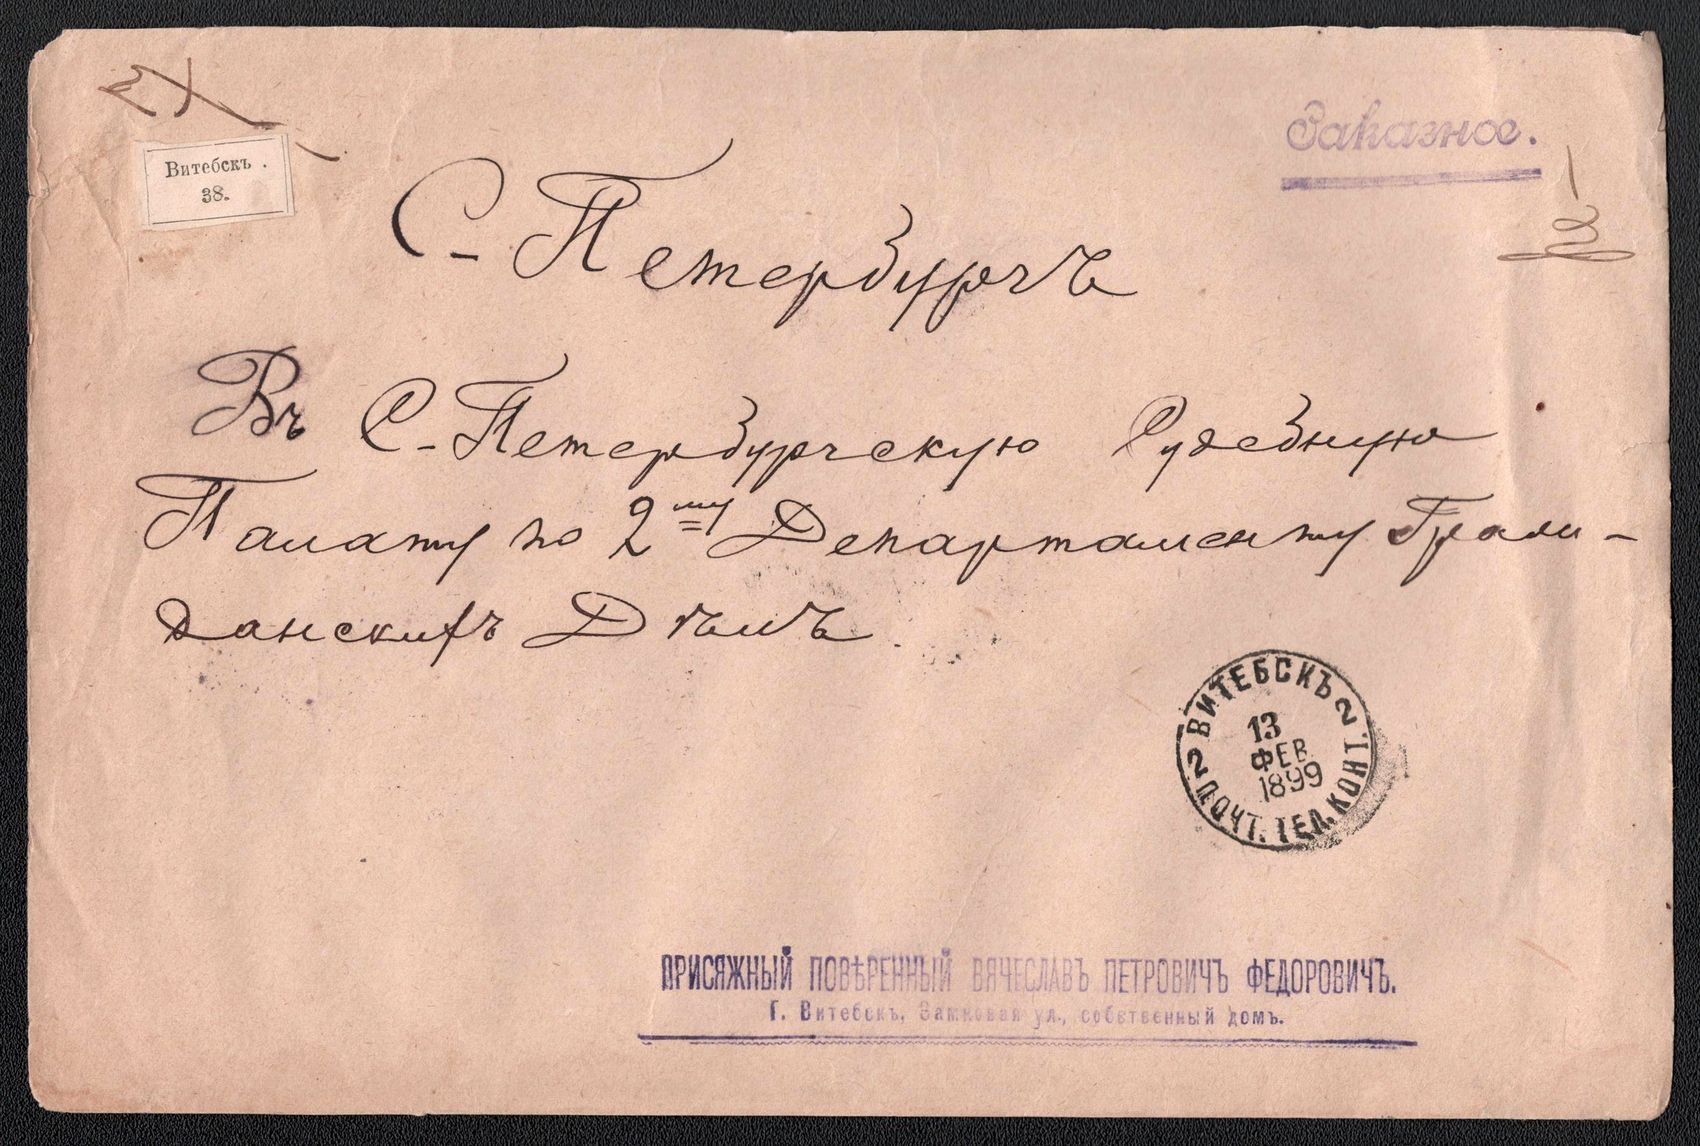 Заказное.
Витебскъ.
38.
С-Петербургъ
Въ С-Петербургскую Судебную
Палату по 2му Департаменту Граж-
данскихъ Дѣлъ.
ВИТЕБСКЪ
13
ФЕВ
1899
2 ПОЧТ. ТЕЛ. КОНТ. 2
ПРИСЯЖНЫЙ ПОВѢРЕННЫЙ ВЯЧЕСЛАВЪ ПЕТРОВИЧЪ ФЕДОРОВИЧЪ.
Г. Витебскъ, Замковая ул., собственный домъ.